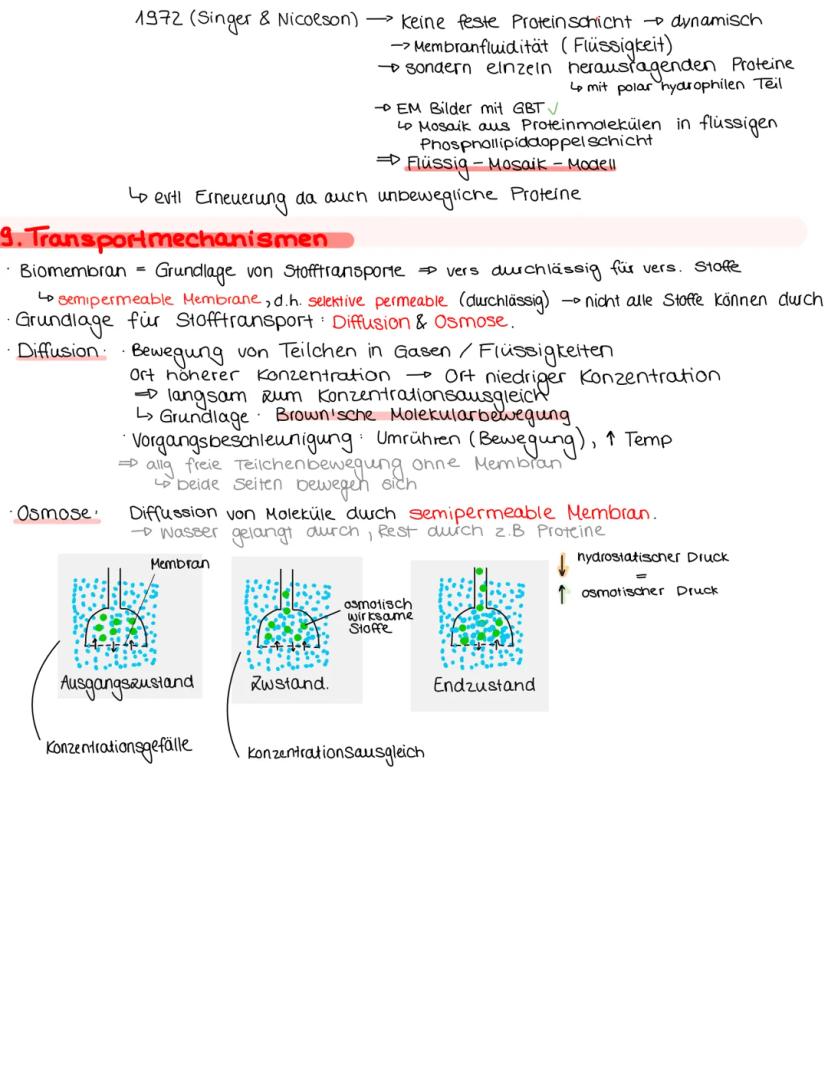 1972 (Singer & Nicolson) → keine feste Proteinschicht → dynamisch
→ Membranfluidität (Flüssigkeit)
→ sondern einzeln herausragenden Proteine
↳ mit polar hydrophilen Teil
→ EM Bilder mit GBT ✓
↳ Mosaik aus Proteinmolekülen in flüssigen
Phospholipiddoppelschicht
⇒ Flüssig-Mosaik-Modell
↳ evtl Erneuerung da auch unbewegliche Proteine
9. Transportmechanismen
· Biomembran = Grundlage von Stofftransporte ⇒ vers durchlässig für vers. Stoffe
↳ semipermeable Membrane, d.h. selektive permeable (durchlässig) → nicht alle Stoffe können durch
· Grundlage für Stofftransport: Diffusion & Osmose.
· Diffusion: · Bewegung von Teilchen in Gasen / Flüssigkeiten
Ort höherer Konzentration → Ort niedriger Konzentration
⇒ langsam zum Konzentrationsausgleich
↳ Grundlage: Brown'sche Molekularbewegung
· Vorgangsbeschleunigung: Umrühren (Bewegung), ↑ Temp
⇒ allg freie Teilchenbewegung ohne Membran
↳ beide Seiten bewegen sich
· Osmose: Diffussion von Moleküle durch semipermeable Membran.
→ Wasser gelangt durch, Rest durch z.B Proteine
Membran
osmotisch
wirksame
Stoffe
↓ hydrostatischer Druck
=
↑ osmotischer Druck
Ausgangszustand
Zwstand.
Endzustand
Konzentrationsgefälle
Konzentrationsausgleich